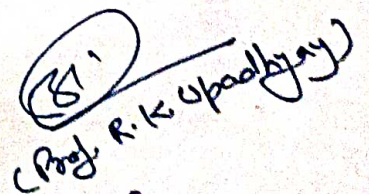 (Prof. R. K. Upadhyay)